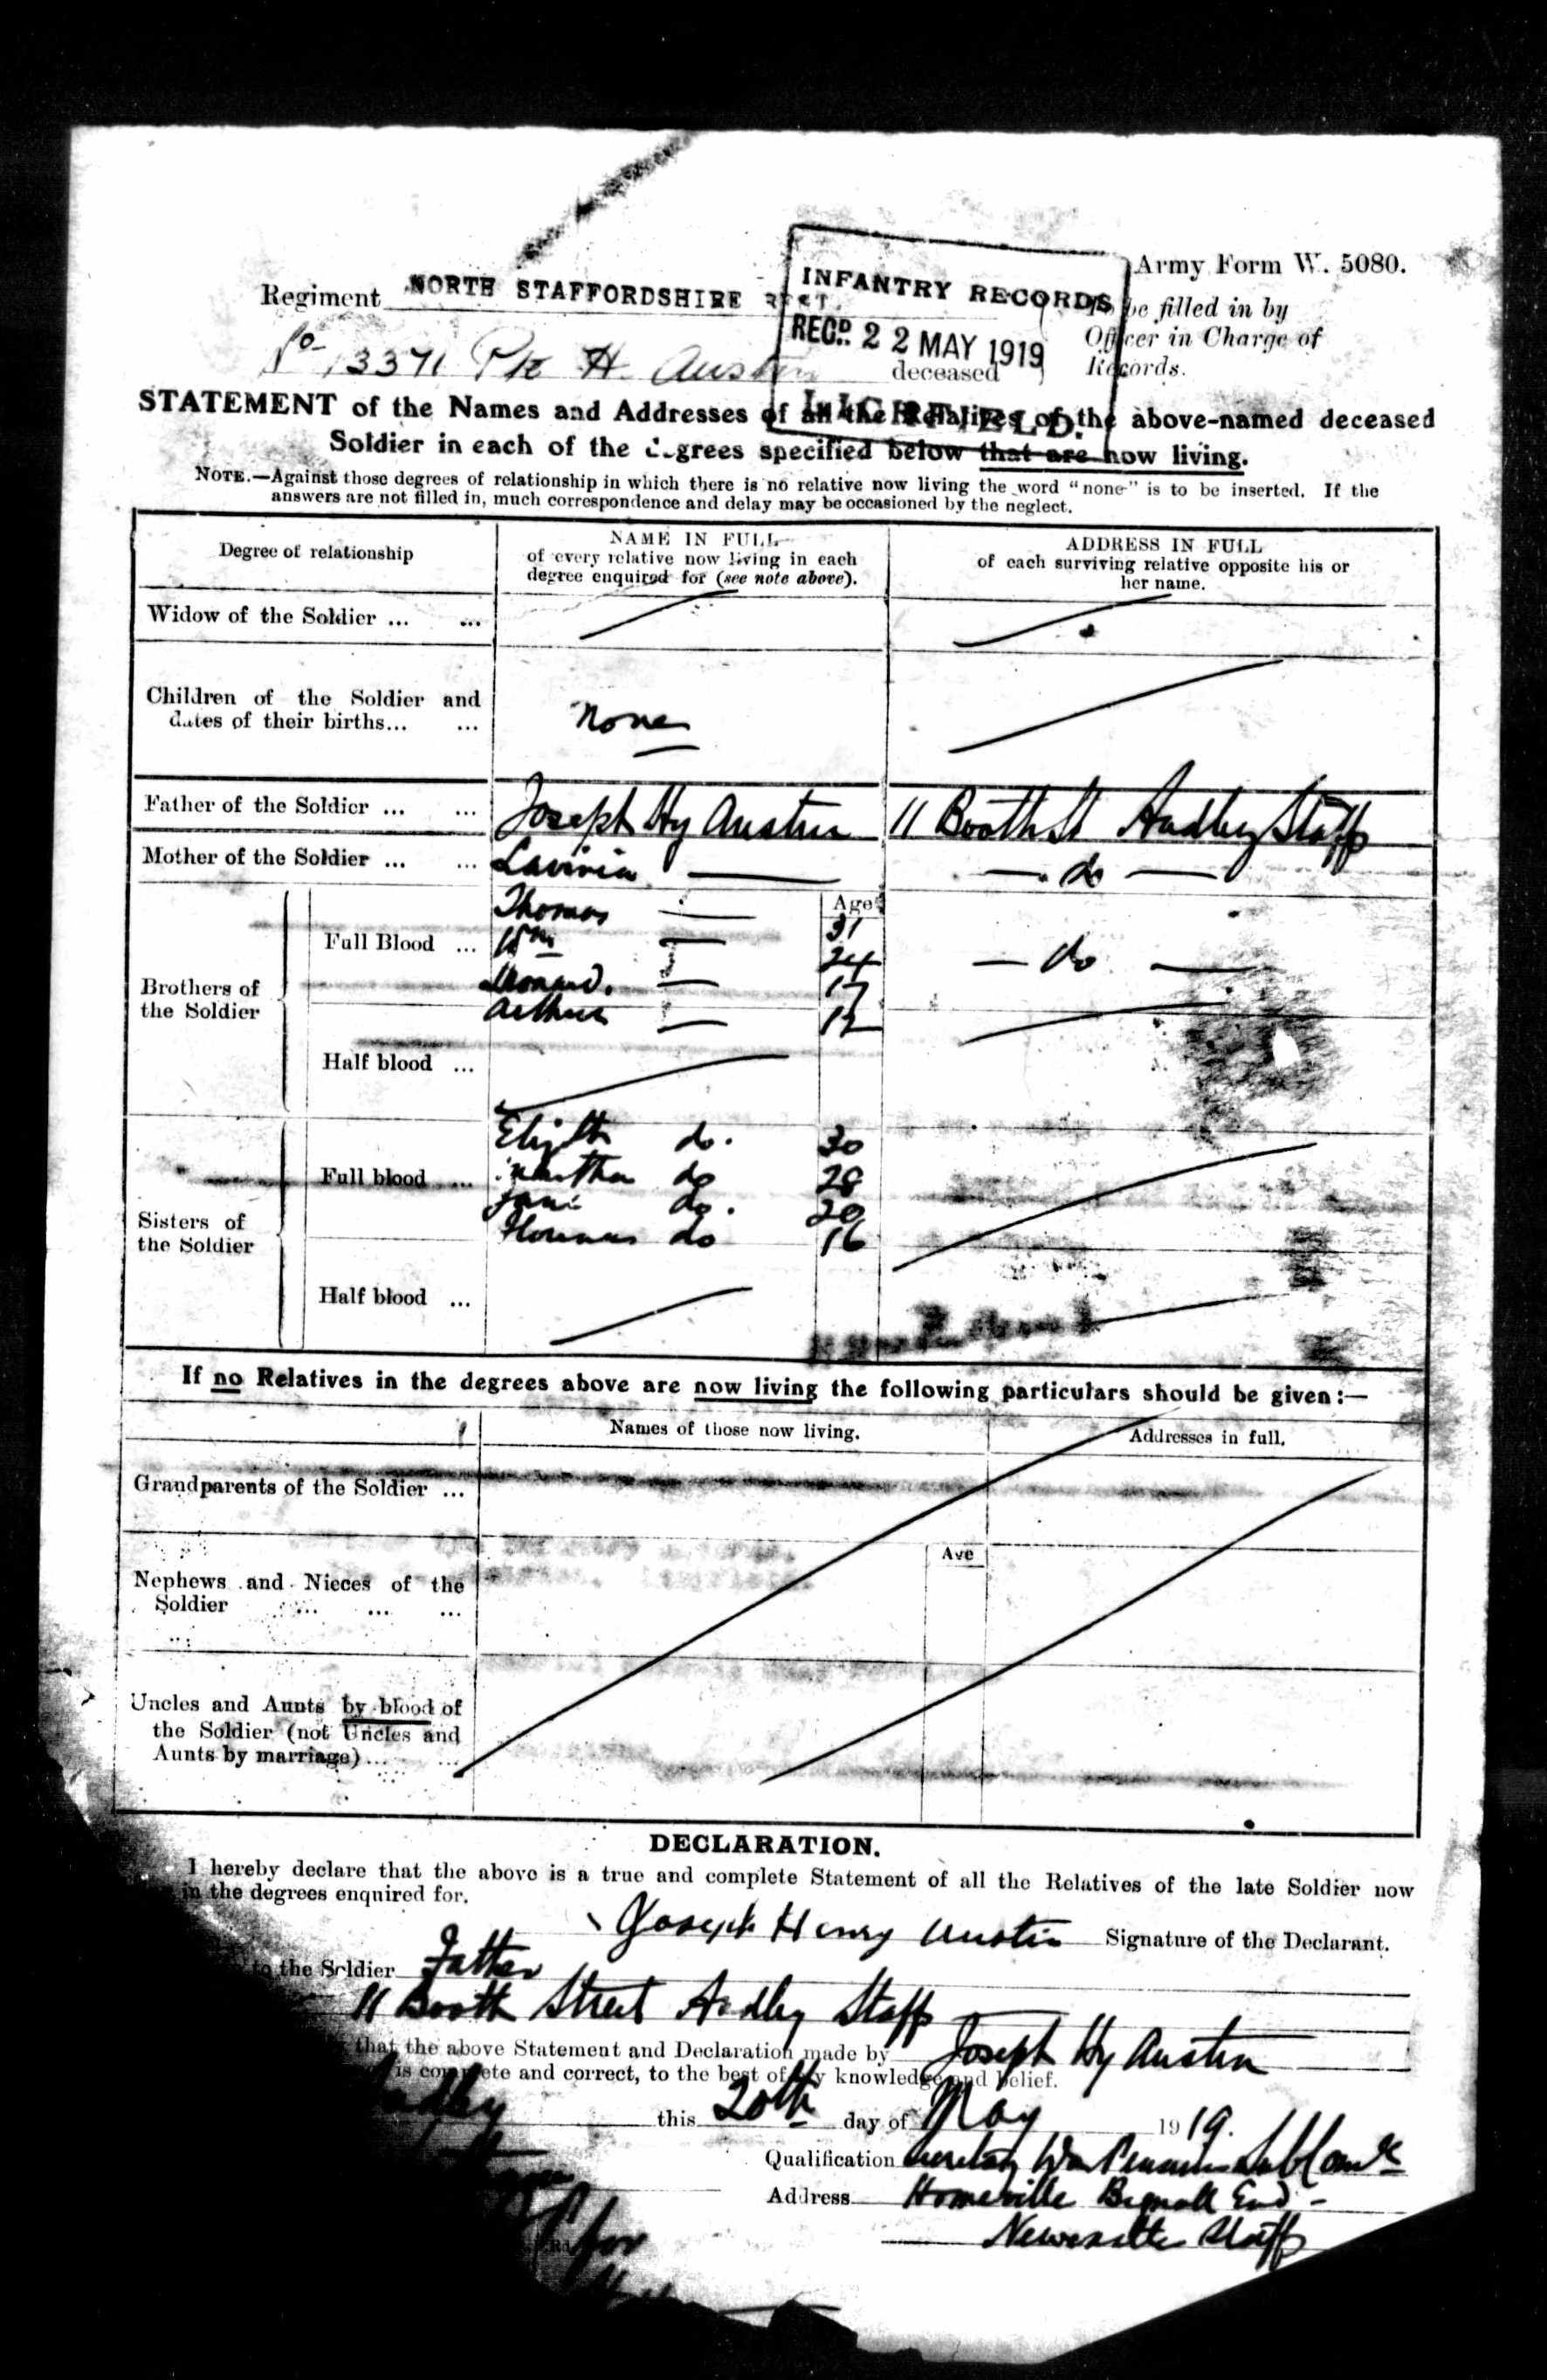 Army Form W. 5080.
Regiment NORTH STAFFORDSHIRE REGT.
INFANTRY RECORDS
RECD. 22 MAY 1919
LICHFIELD.
To be filled in by
Officer in Charge of
Records.
No 13371 Pte H. Austin deceased
STATEMENT of the Names and Addresses of all the Relatives of the above-named deceased
Soldier in each of the degrees specified below that are now living.
NOTE.—Against those degrees of relationship in which there is no relative now living the word "none" is to be inserted. If the
answers are not filled in, much correspondence and delay may be occasioned by the neglect.
Degree of relationship
NAME IN FULL
of every relative now living in each
degree enquired for (see note above).
ADDRESS IN FULL
of each surviving relative opposite his or
her name.
Widow of the Soldier ... ...
Children of the Soldier and
dates of their births... ...
None
Father of the Soldier ... ... Joseph Hy Austin 11 Booth St Audley Staffs
Mother of the Soldier ... ... Lavinia — do —
Age
Brothers of
the Soldier
Full Blood ...
Thomas 31
Wm 24
Leonard. 17
Arthur 12
— do —
Half blood ...
Sisters of
the Soldier
Full blood ...
Elizth do. 30
Martha do 28
Jane do. 20
Florence do 16
Half blood ...
If no Relatives in the degrees above are now living the following particulars should be given:—
Names of those now living.
Addresses in full.
Grandparents of the Soldier ...
Age
Nephews and Nieces of the
Soldier ... ... ...
Uncles and Aunts by blood of
the Soldier (not Uncles and
Aunts by marriage)... ...
DECLARATION.
I hereby declare that the above is a true and complete Statement of all the Relatives of the late Soldier now
in the degrees enquired for.
Joseph Henry Austin Signature of the Declarant.
to the Soldier Father
11 Booth Street Audley Staffs
that the above Statement and Declaration made by Joseph Hy Austin
is complete and correct, to the best of my knowledge and belief.
this 20th day of May 1919.
Qualification Secretary War Pensions
Address Homeville Bignall End -
Newcastle Staffs
for